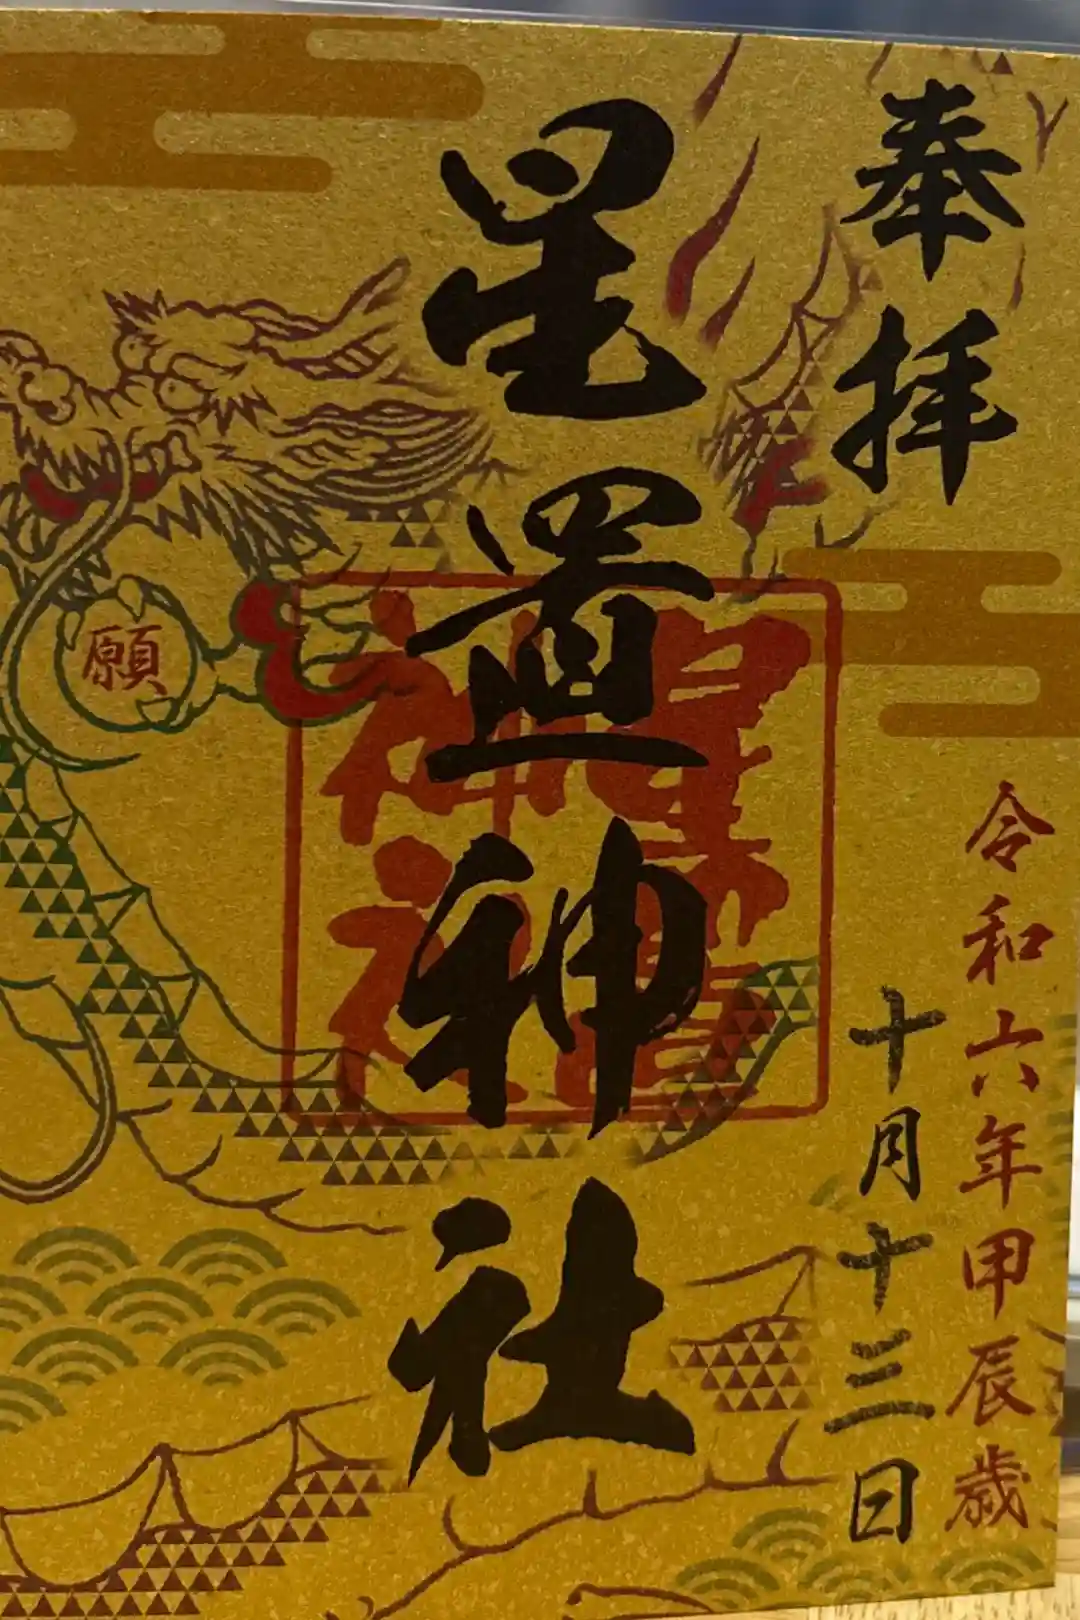 奉拝
令和六年甲辰歳
十月十三日
星置神社
星置神社
願